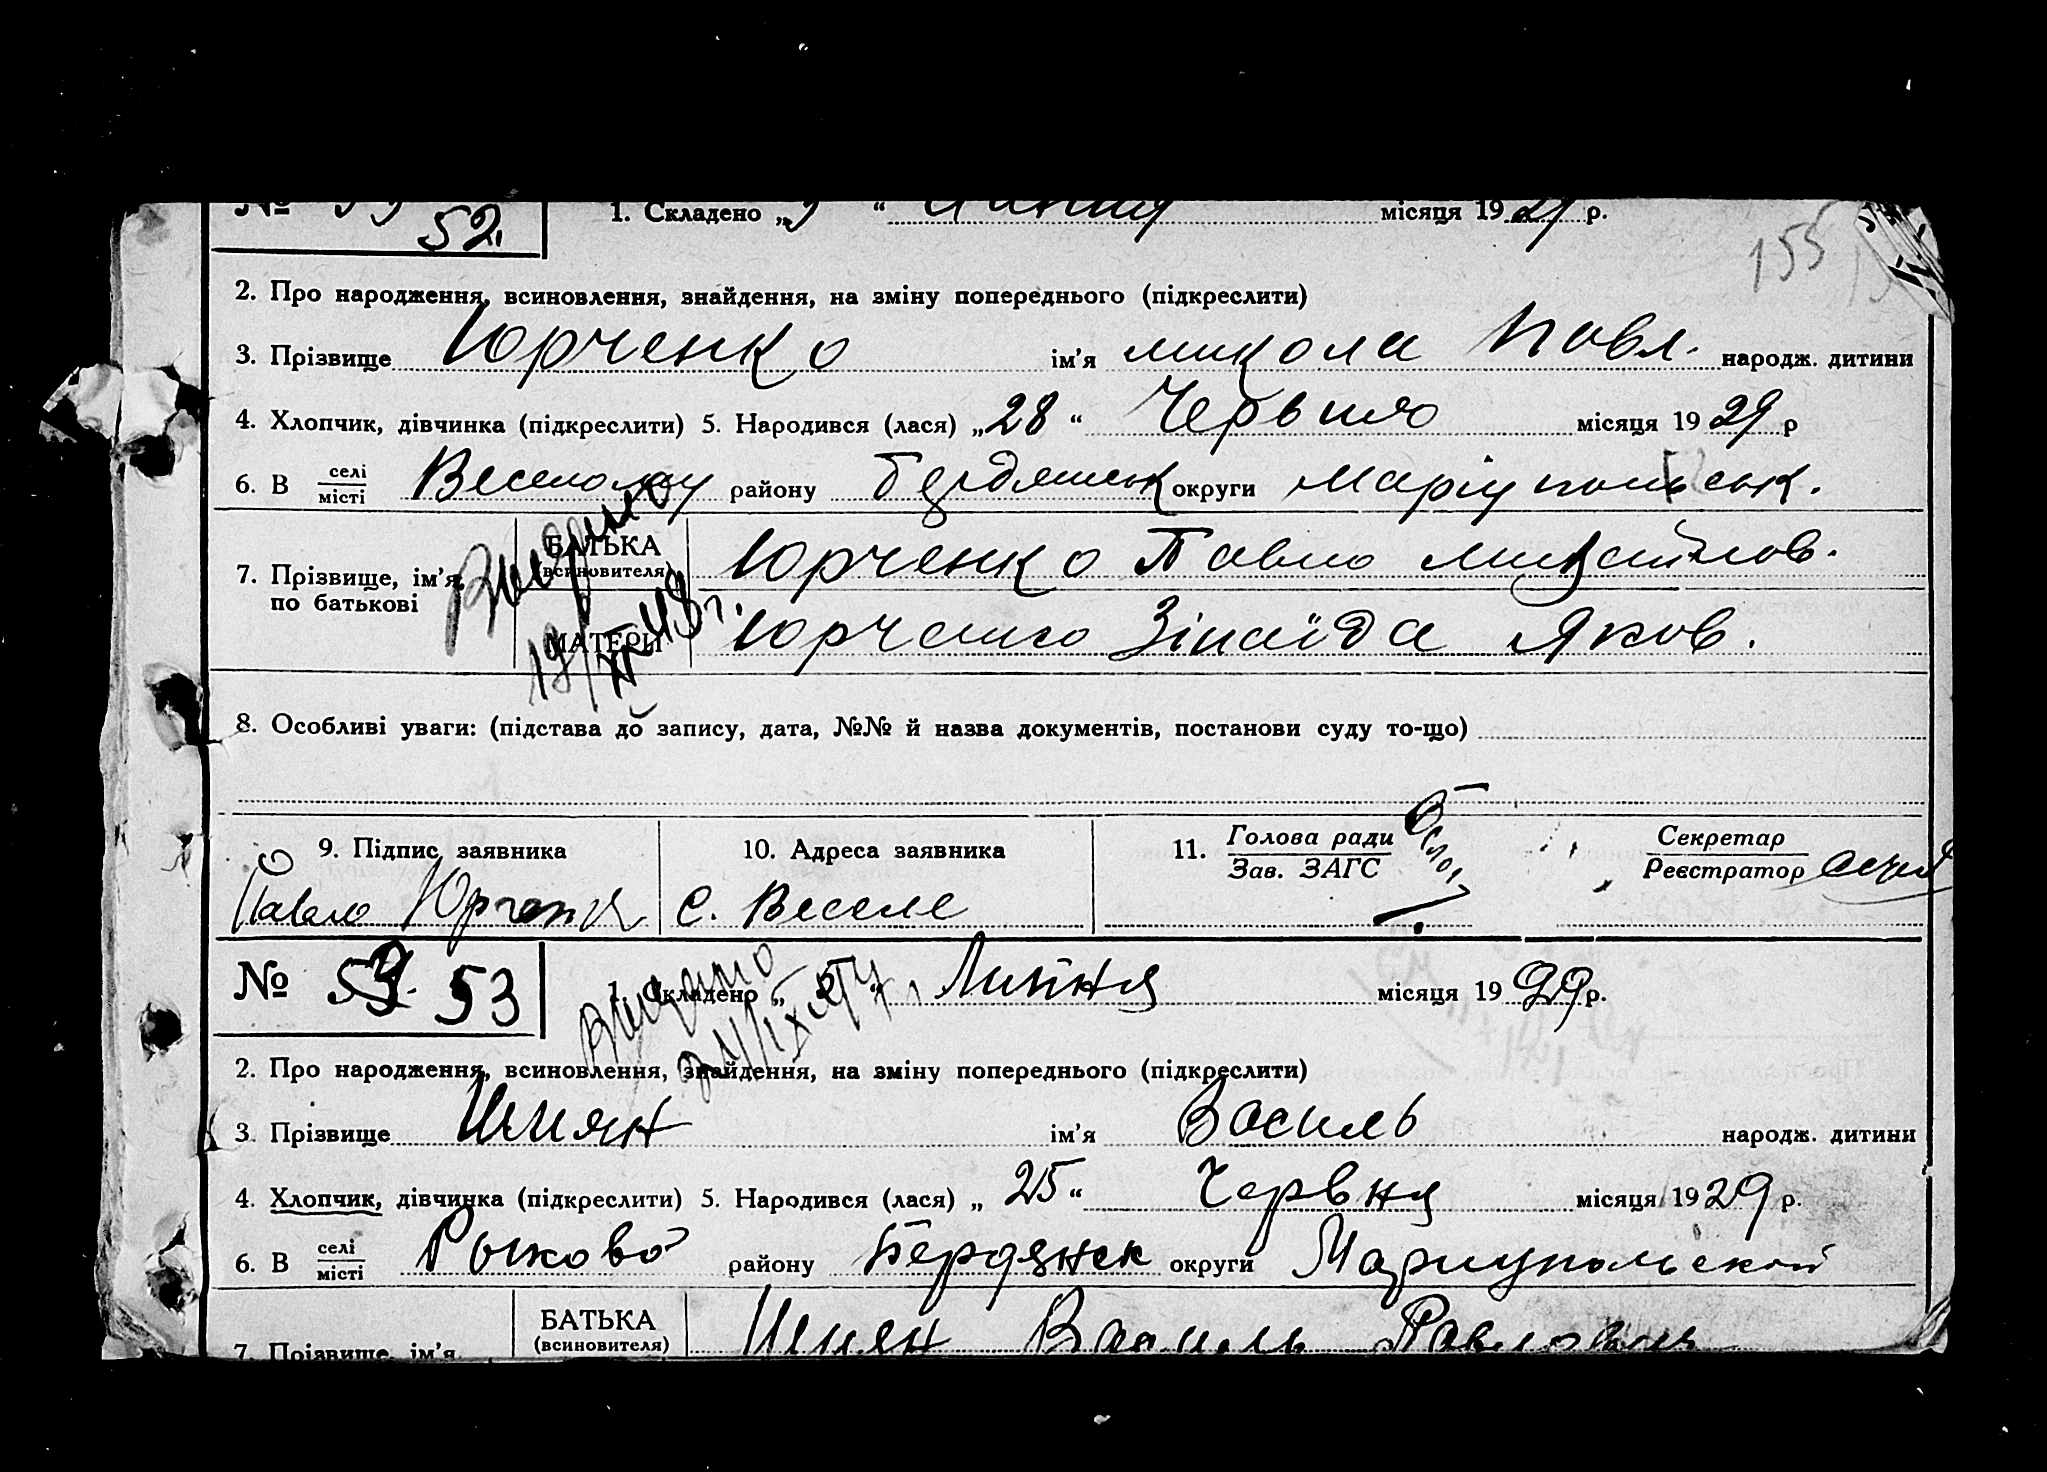 № 52.
1. Складено „ 3 “ Липня місяця 1929 р.
155
2. Про народження, всиновлення, знайдення, на зміну попереднього (підкреслити)
3. Прізвище Юрченко ім’я Микола Павл. народж. дитини
4. Хлопчик, дівчинка (підкреслити) 5. Народився (лася) „28“ Червня місяця 1929 р
6. В селі місті Веселому району Бердянськ округи Маріупольськ.
7. Прізвище, ім’я, по батькові
БАТЬКА (всиновителя) Юрченко Павло Михайлов.
МАТЕРИ Юрченко Зінаїда Яков.
8. Особливі уваги: (підстава до запису, дата, №№ й назва документів, постанови суду то-що)
9. Підпис заявника 10. Адреса заявника 11. Голова ради Зав. ЗАГС Секретар Реєстратор
Павло Юрченко с. Веселе
№ 53
1. Складено „ “ Липня місяця 1929 р.
2. Про народження, всиновлення, знайдення, на зміну попереднього (підкреслити)
3. Прізвище Шиян ім’я Василь народж. дитини
4. Хлопчик, дівчинка (підкреслити) 5. Народився (лася) „ 25 “ Червня місяця 1929 р.
6. В селі місті Рыково району Бердянск округи Мариупольской
7. Прізвище, ім’я,
БАТЬКА (всиновителя) Шиян Василь Павлович